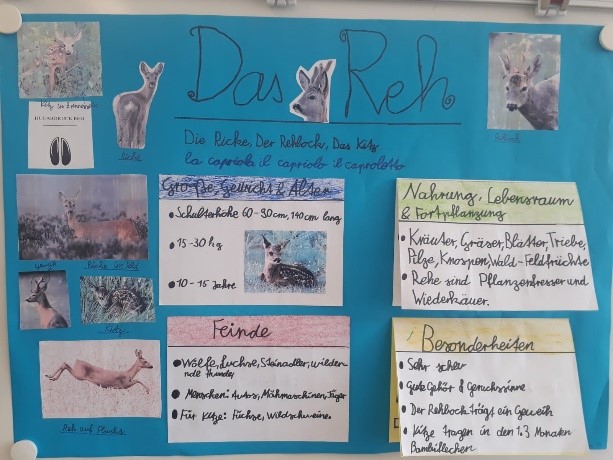 Das Reh
Die Ricke, Der Rehbock, Das Kitz
la capriola il capriolo il caprolotto
Kitz im
Ricke
Rehbock
Größe, Gewicht & Alter
Schulterhöhe 60-90cm, 140cm lang
15-30 kg
10-15 Jahre
Nahrung, Lebensraum
& Fortpflanzung
Kräuter, Gräser, Blätter, Triebe,
Pilze, Knospen, Wald-Feldfrüchte
Rehe sind Pflanzenfresser und
Wiederkäuer.
Ricke im
Kitz
Feinde
Wölfe, Luchse, Steinadler, wilder
nde Hunde,
Menschen: Autos, Mähmaschinen, Jäger
Für Kitze: Füchse, Wildschweine.
Besonderheiten
Sehr scheu
Gute Gehör & Geruchssinne
Der Rehbock trägt ein Geweih
Kitze tragen in den 1.3 Monaten
Reh auf